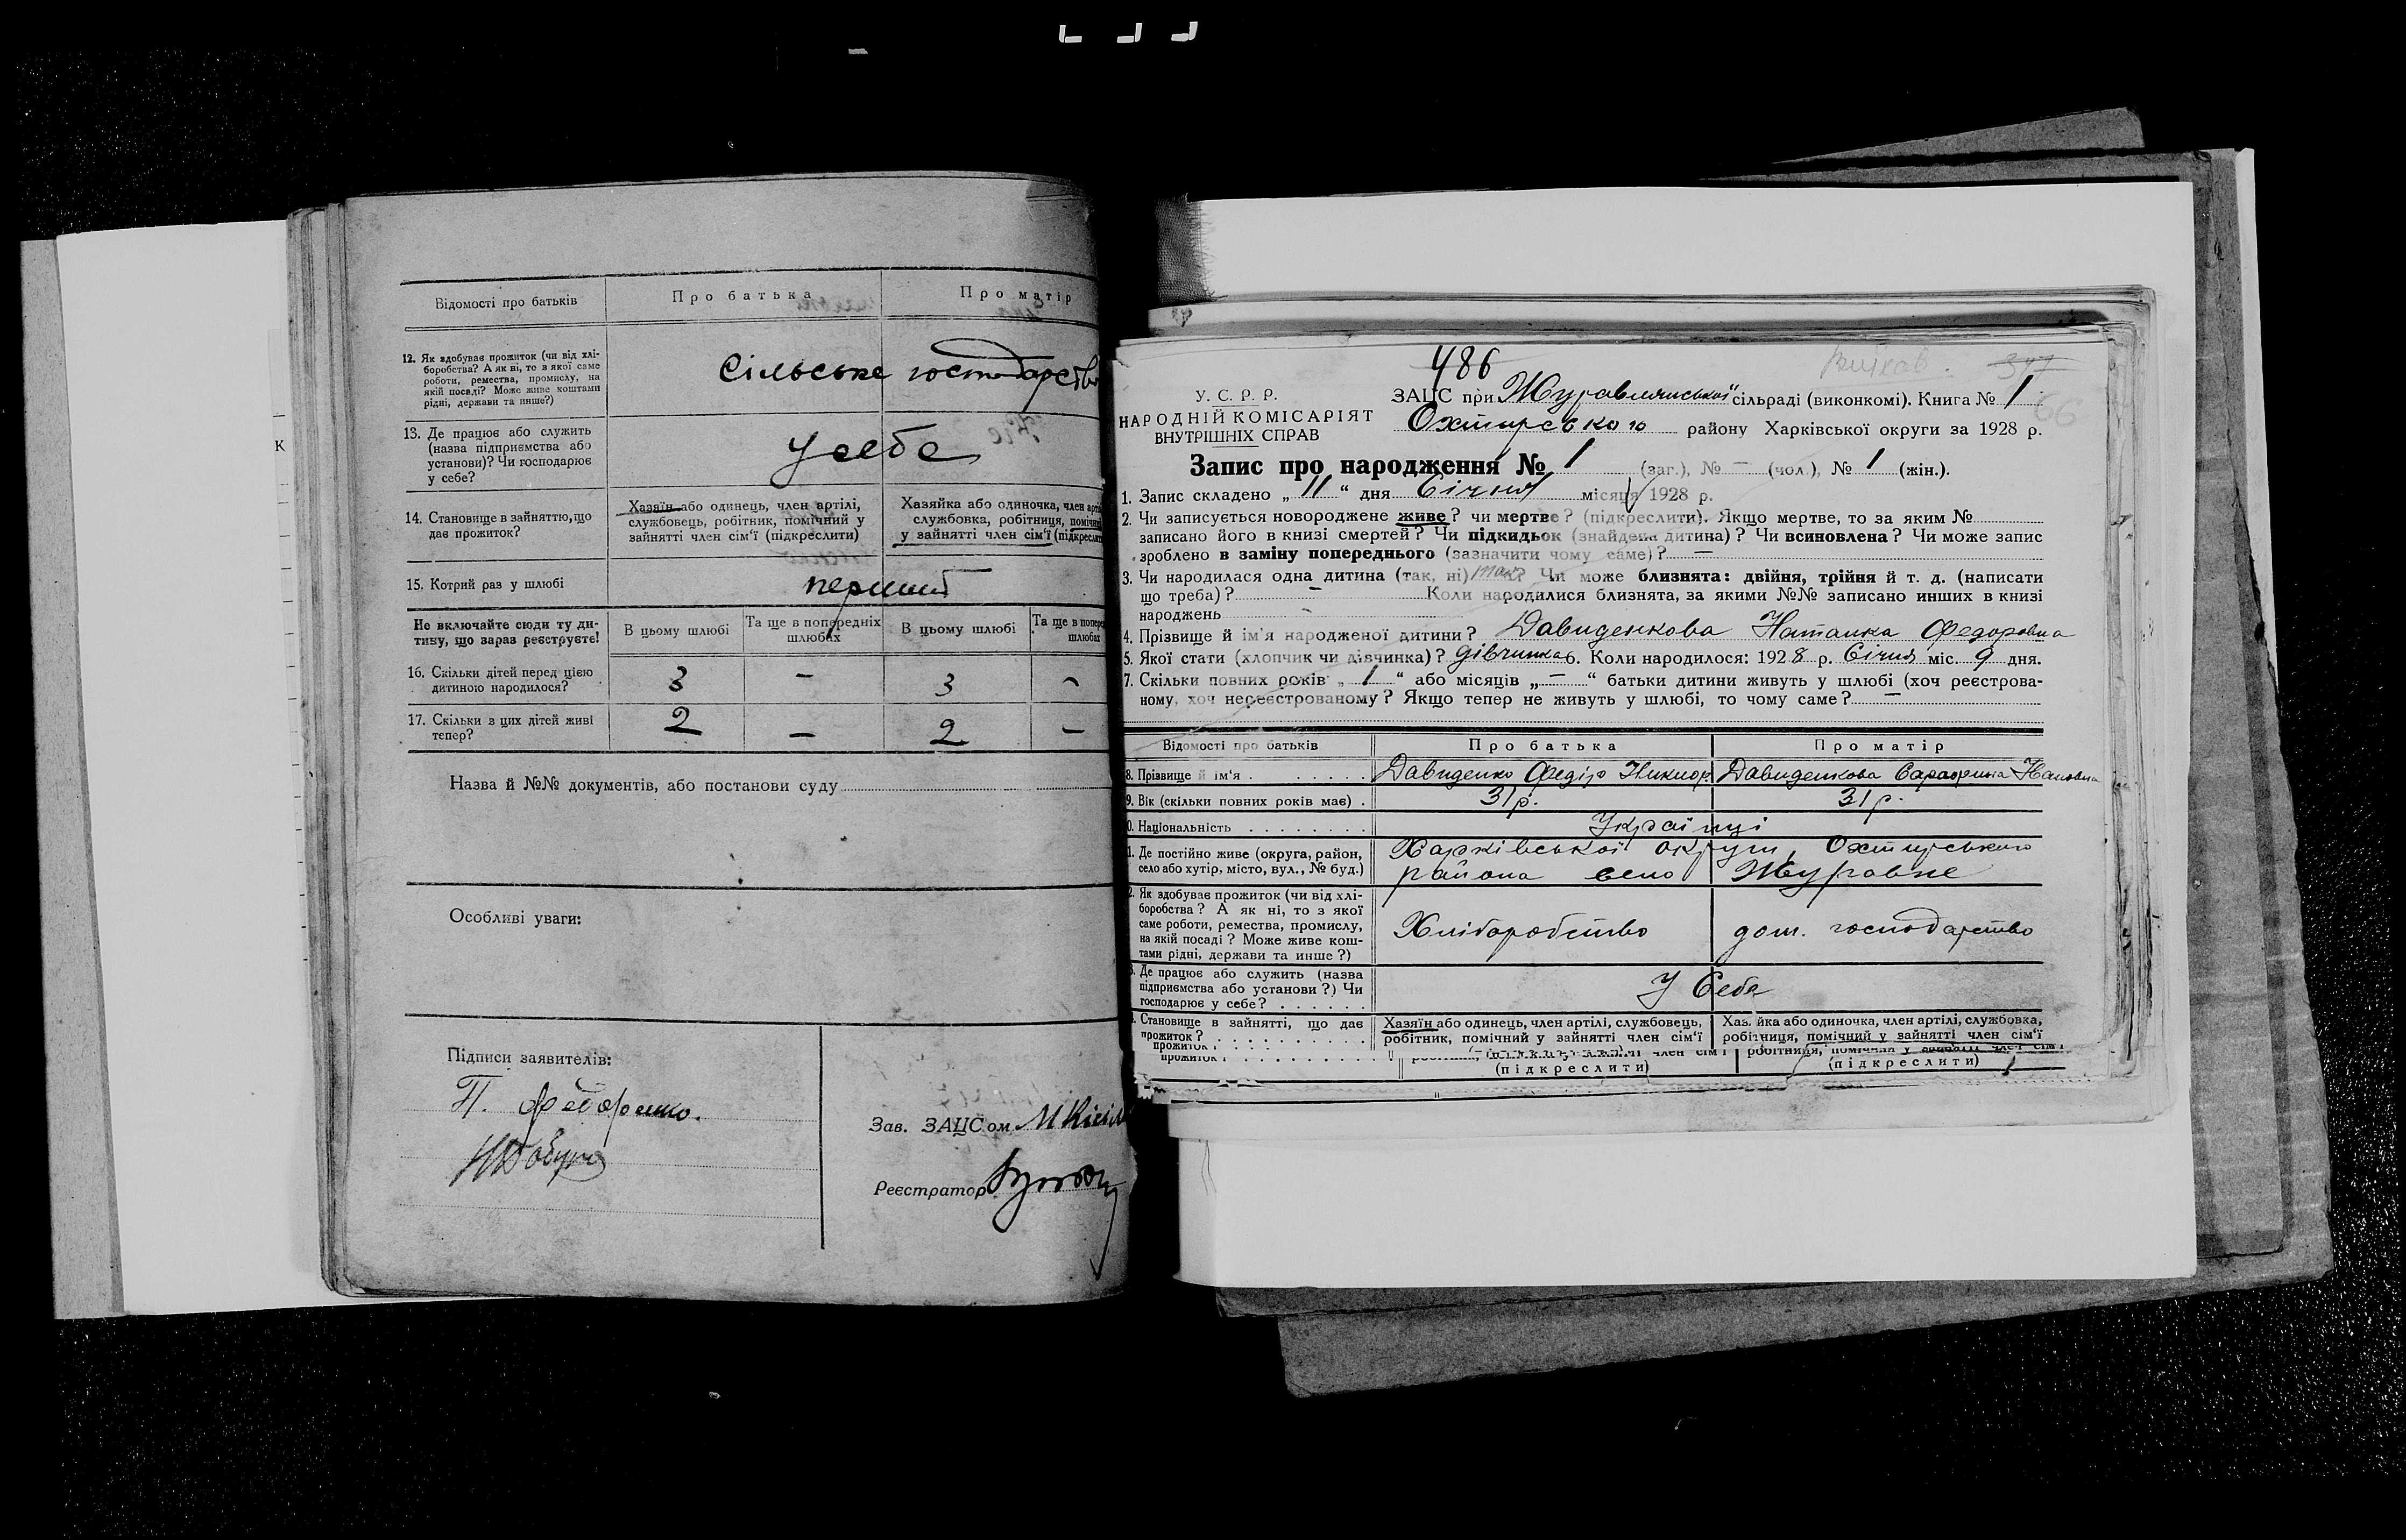 К
Відомості про батьків
Про батька
Про матір
12. Як здобуває прожиток (чи від хлі-
боробства? А як ні, то з якої саме
роботи, ремества, промислу, на
якій посаді? Може живе коштами
рідні, держави та инше?)
Сільське господарство
13. Де працює або служить
(назва підприємства або
установи)? Чи господарює
у себе?
У себе
14. Становище в зайняттю, що
дає прожиток?
Хазяїн або одинець, член артілі,
службовець, робітник, помічний у
зайнятті член сім'ї (підкреслити)
Хазяйка або одиночка, член арті
службовка, робітниця, помічний
у зайнятті член сім'ї (підкреслит
15. Котрий раз у шлюбі
перший
Не включайте сюди ту ди-
тину, що зараз реєструєте!
В цьому шлюбі
Та ще в попередніх
шлюбах
В цьому шлюбі
Та ще в попере
шлюбах
16. Скільки дітей перед цією
дитиною народилося?
3 — 3 —
17. Скільки з цих дітей живі
тепер?
2 — 2 —
Назва й №№ документів, або постанови суду
Особливі уваги:
Підписи заявителів:
П. Федоренко.
Зав. ЗАЦСом
Реєстратор
486
347
66
У. С. Р. Р.
НАРОДНІЙ КОМІСАРІЯТ
ВНУТРІШНІХ СПРАВ
ЗАЦС при Журавлянської сільраді (виконкомі). Книга № 1
Охтирського району Харківської округи за 1928 р.
Запис про народження № 1 (заг.), № — (чол.), № 1 (жін.).
1. Запис складено „ 11 “ дня Січня місяця 1928 р.
2. Чи записується новороджене живе? чи мертве? (підкреслити). Якщо мертве, то за яким №
записано його в книзі смертей? Чи підкидьок (знайдена дитина)? Чи всиновлена? Чи може запис
зроблено в заміну попереднього (зазначити чому саме)? —
3. Чи народилася одна дитина (так, ні) так? Чи може близнята: двійня, трійня й т. д. (написати
що треба)? — Коли народилися близнята, за якими №№ записано инших в книзі
народжень —
4. Прізвище й ім'я народженої дитини? Давиденкова Наталка Федоровна
5. Якої стати (хлопчик чи дівчинка)? дівчинка 6. Коли народилося: 1928 р. Січня міс. 9 дня.
7. Скільки повних років „ 1 “ або місяців „ — “ батьки дитини живуть у шлюбі (хоч реєстрова-
ному, хоч нереєстрованому? Якщо тепер не живуть у шлюбі, то чому саме? —
Відомості про батьків
Про батька
Про матір
8. Прізвище й ім'я
Давиденко Федір Никиор
Давиденкова
9. Вік (скільки повних років має)
31 р.
31 р.
0. Національність
Українці
1. Де постійно живе (округа, район,
село або хутір, місто, вул., № буд.)
Харківської округи, Охтирського
района село Журавне
2. Як здобуває прожиток (чи від хлі-
боробства? А як ні, то з якої
саме роботи, ремества, промислу,
на якій посаді? Може живе кош-
тами рідні, держави та инше?)
Хліборобство
дом. господарство
3. Де працює або служить (назва
підприємства або установи?) Чи
господарює у себе?
У Себе
Становище в зайнятті, що дає
прожиток?
Хазяїн або одинець, член артілі, службовець,
робітник, помічний у зайнятті член сім'ї
Хазяйка або одиночка, член артілі, службовка,
робітниця, помічний у зайнятті член сім'ї
прожиток?
прожиток?
член сім'ї
робітниця, помічний у зайнятті член сім'ї
(підкреслити)
(підкреслити)